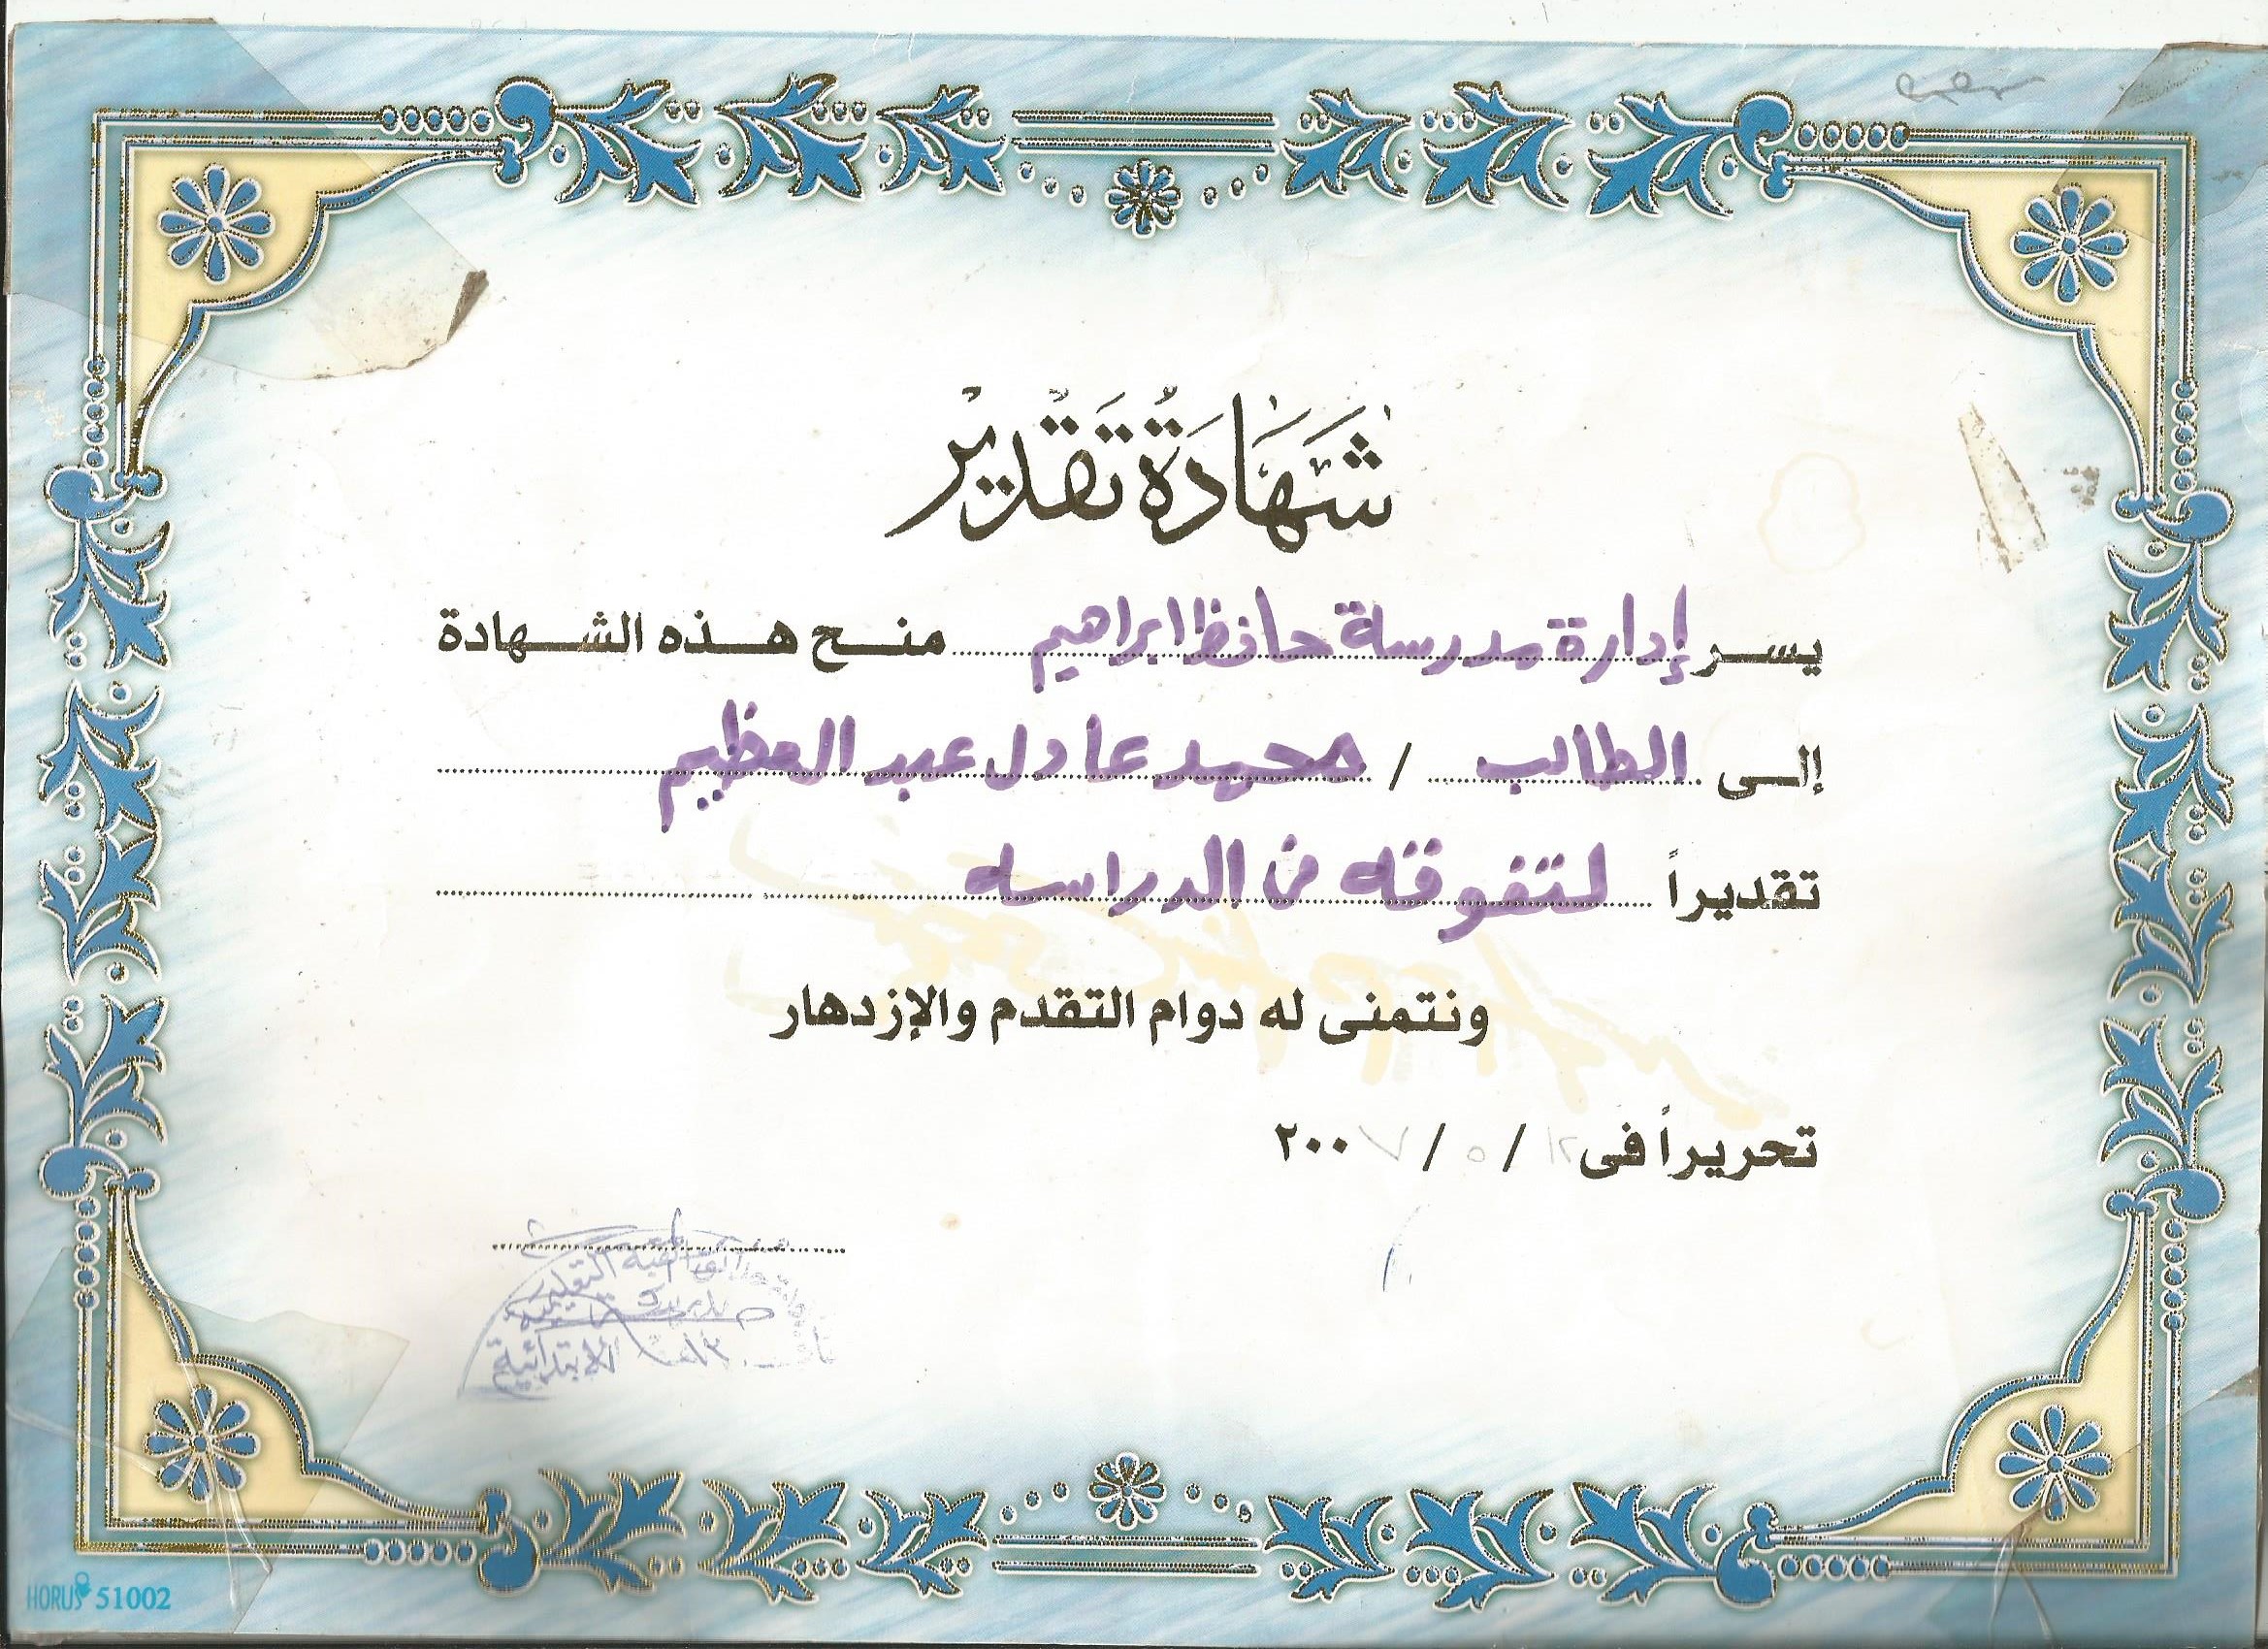 شَهَادَةُ تَقْدِيرْ
يسر إدارة مدرسة حافظ ابراهيم منح هذه الشهادة
إلى الطالب / محمد عادل عبد العظيم
تقديراً لتفوقه فى الدراسه
ونتمنى له دوام التقدم والإزدهار
تحريراً فى ١٢ / ٥ / ٢٠٠٧
التعليمية
الابتدائية
HORUS 51002